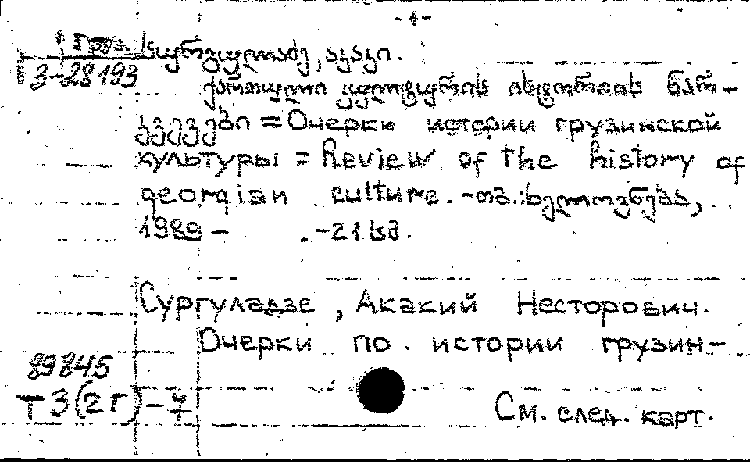 -1-
სურგულაძე, აკაკი.
3-28193
ქართული კულტურის ისტორიის ნარ-
კვევები = Очерки истории грузинской
культуры = Review of the history of
georgian culture. -თბ.:ხელოვნება,
1989 - . -21 სმ.
Сургуладзе, Акакий Несторович.
Очерки по истории грузин-
89845
Т3(2Г)-7
См. след. карт.